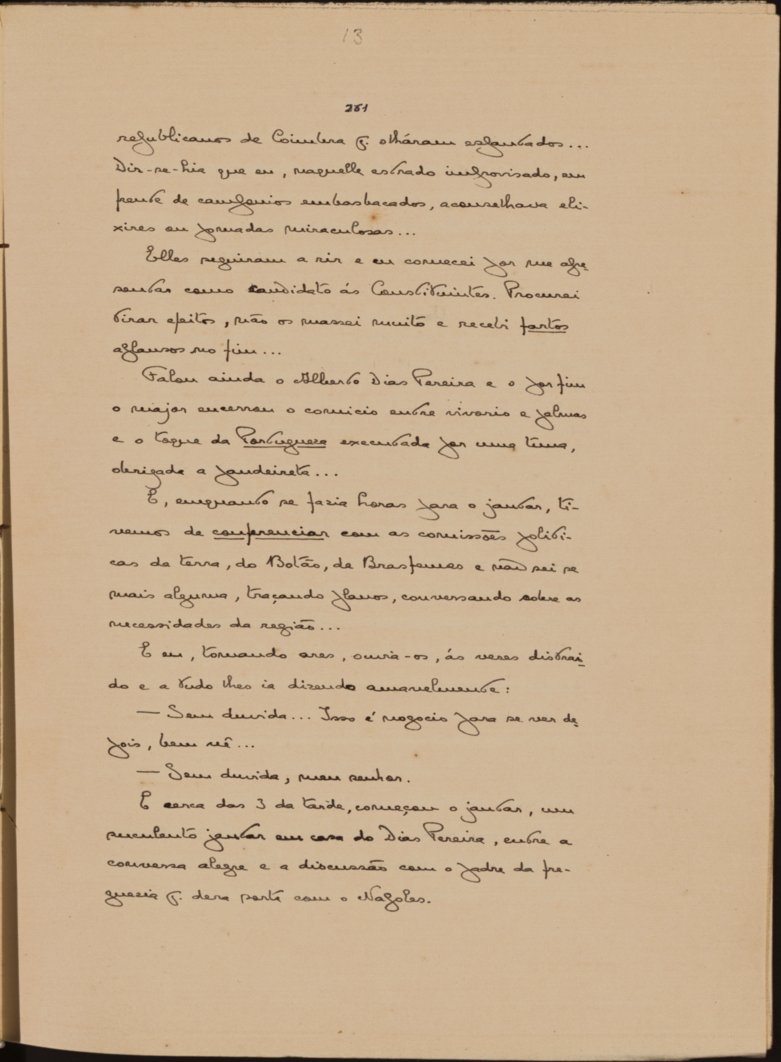 13
261
republicanos de Coimbra q. olháram espantados...
Dir-se-hia que eu, naquelle estrado improvisado, em
frente de camponios embasbacados, aconselhava eli-
xires ou pomadas miraculosas...
Elles seguiram a rir e eu comecei por me apre-
sentar como candidato ás Constituintes. Procurei
tirar efeitos, não os massei muito e recebi fartos
aplausos no fim...
Falou ainda o Alberto Dias Pereira e o por fim
o major encerrou o comicio entre vivorio e palmas
e o toque da Portugueza executada por uma tuna,
obrigada a pandeireta...
E, emquanto se fazia horas para o jantar, ti-
vemos de conferenciar com as comissões politi-
cas da terra, do Botão, de Brasfemes e não sei se
mais alguma, traçando planos, conversando sobre as
necessidades da região...
E eu, tomando ares, ouvia-os, ás vezes distrai-
do e a tudo lhes ia dizendo amavelmente:
— Sem duvida... Isso é negocio para se ver de-
pois, bem vê...
— Sem duvida, meu senhor.
E cerca das 3 da tarde, começou o jantar, um
suculento jantar em casa do Dias Pereira, entre a
conversa alegre e a discussão com o padre da fre-
guezia q. dera sorte com o Napoles.